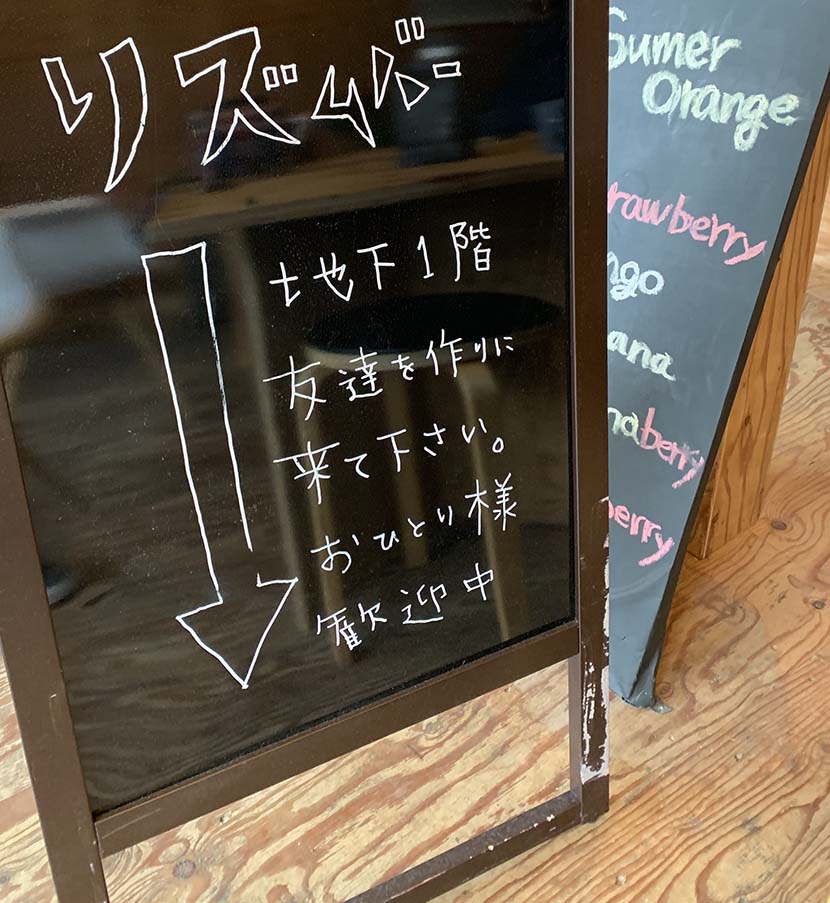 リズムバー
地下1階
友達を作りに
来て下さい。
おひとり様
歓迎中
Sumer
Orange
rawberry
ngo
ana
naberry
berry